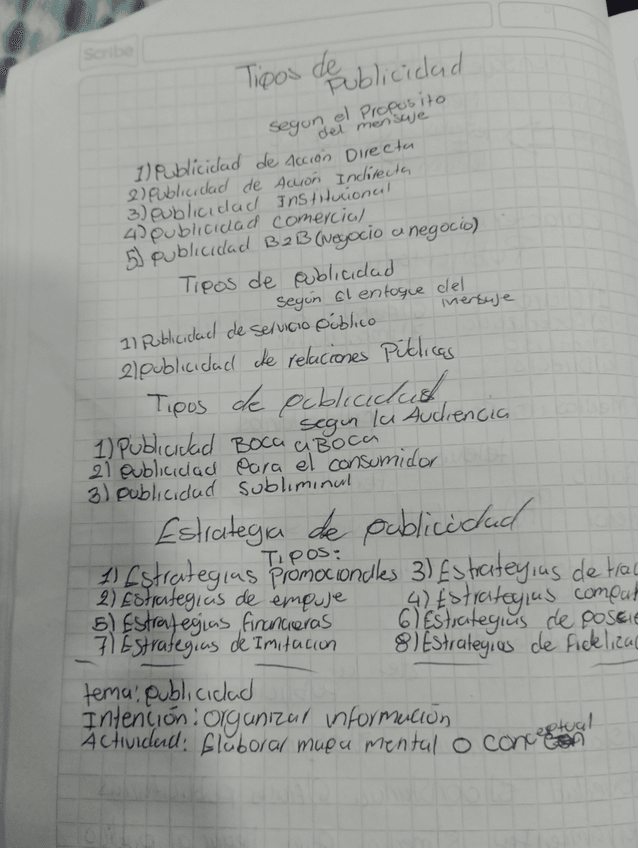 Scribe
Tipos de
Publicidad
segun el Proposito
del mensaje
1) Publicidad de Acción Directa
2) Publicidad de Acción Indirecta
3) publicidad Institucional
4) publicidad comercial
5) publicidad B2B (Negocio a negocio)
Tipos de publicidad
según El enfoque del
mensaje
1) Publicidad de servicio público
2) publicidad de relaciones Públicas
Tipos de publicidad
segun la Audiencia
1) Publicidad BOCA a BOCA
2) publicidad Para el consumidor
3) publicidad subliminal
Estrategia de publicidad
TIPOS:
1) Estrategias Promocionales 3) Estrategias de trac
2) Estrategias de empuje 4) Estrategias compat
5) Estrategias financieras 6) Estrategias de posci
7) Estrategias de Imitacion 8) Estrategias de Fideliza
tema: publicidad
Intención: organizar información
Actividad: Elaborar mapa mental o conceptual